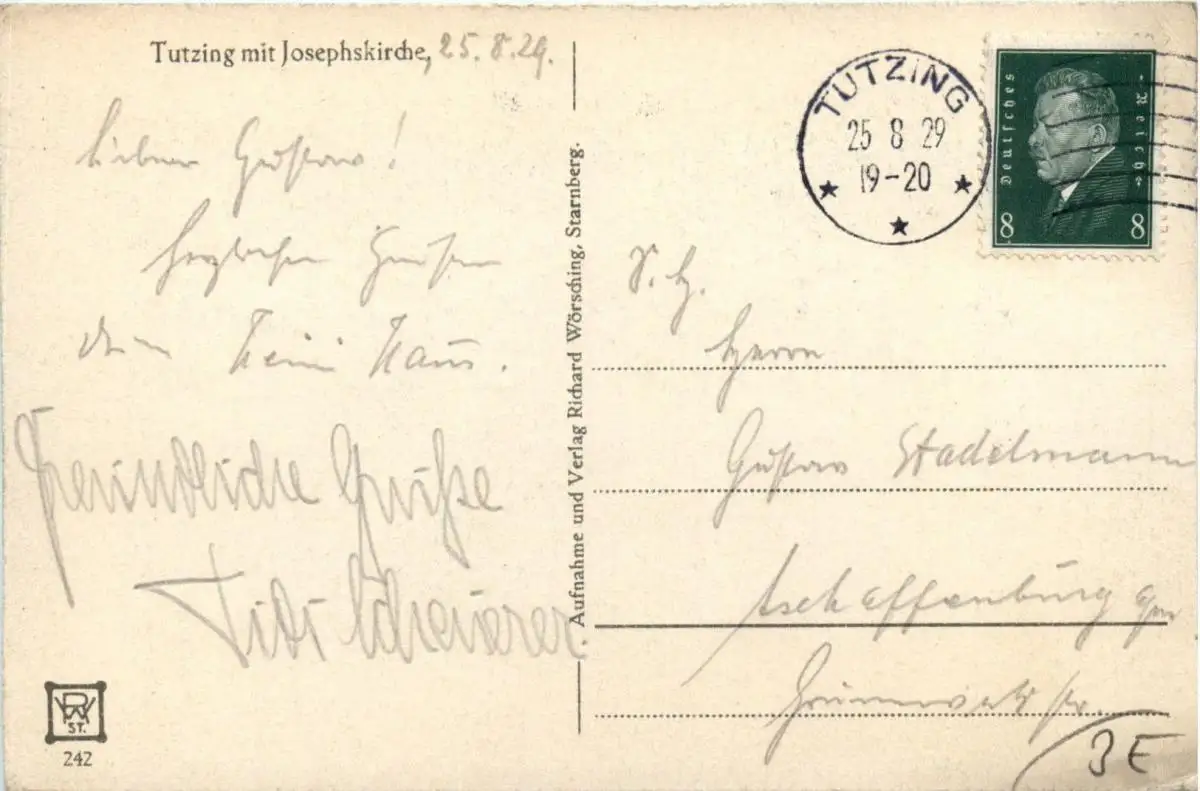 Tutzing mit Josephskirche, 25.8.29.
Lieber Gustav!
Herzliche Grüsse
Dein Heini Haus.
Freundliche Grüße
Scheuerer.
WR ST.
242
Aufnahme und Verlag Richard Wörsching, Starnberg.
TUTZING
25 8 29
19-20
Deutsches Reich
8 8
S. H.
Herrn
Gustav Stadelmann
Aschaffenburg
3E